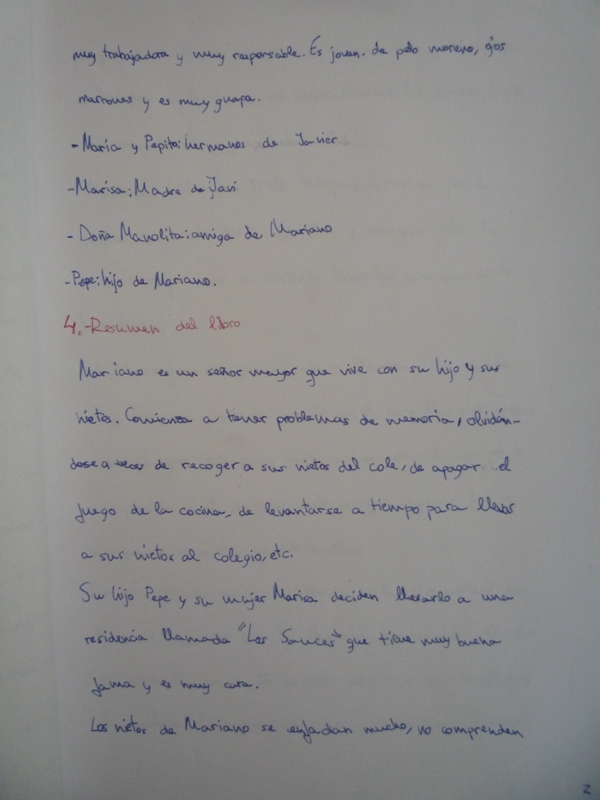 muy trabajadora y muy responsable. Es joven. de pelo moreno, ojos
marrones y es muy guapa.
-María y Pepito: hermanos de Javier
-Marisa: Madre de Javi
-Doña Manolita: amiga de Mariano
-Pepe: hijo de Mariano.
4.-Resumen del libro
Mariano es un señor mayor que vive con su hijo y sus
nietos. Comienza a tener problemas de memoria, olvidán-
dose a veces de recoger a sus nietos del cole, de apagar el
fuego de la cocina, de levantarse a tiempo para llevar
a sus nietos al colegio, etc.
Su hijo Pepe y su mujer Marisa deciden llevarlo a una
residencia llamada "Los Sauces" que tiene muy buena
fama y es muy cara.
Los nietos de Mariano se enfadan mucho, no comprenden
2